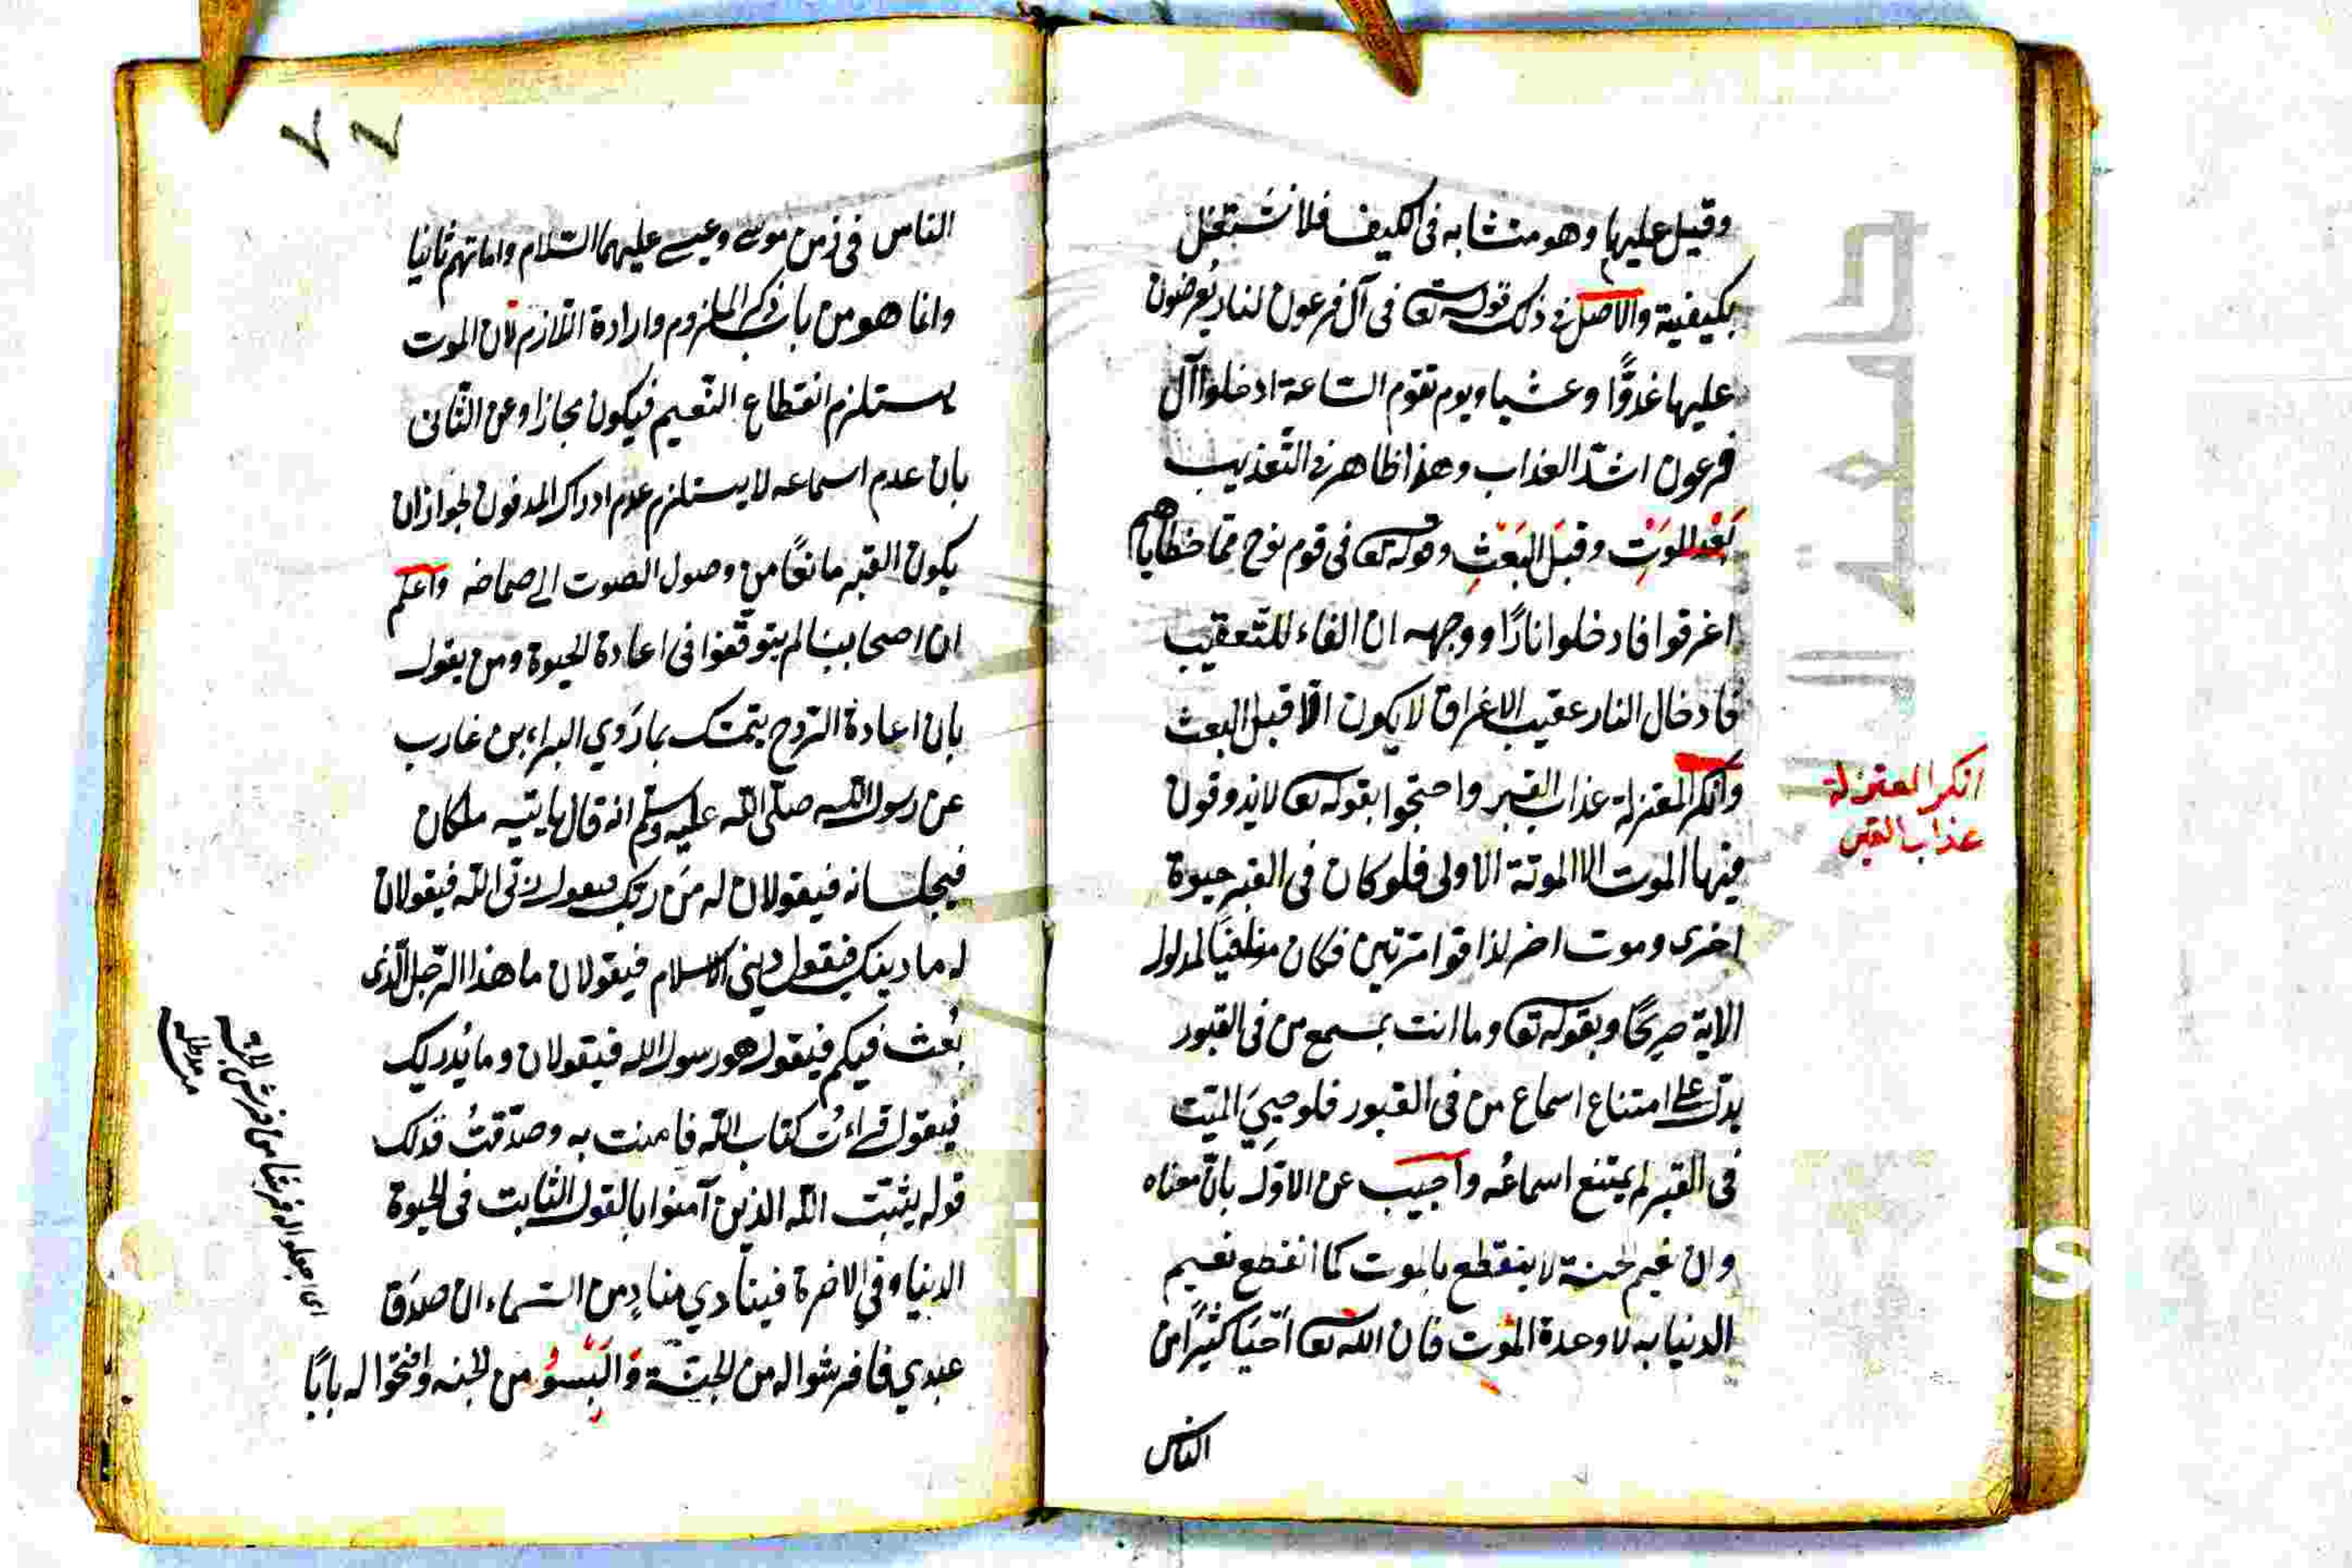 وقيل عليها وهو متشابه فى الكيف فلا نشتغل
بكيفية والاصل فى ذلك قوله تعا فى آل فرعون لنار يُعرضون
عليها غدوًّا وعشيا ويوم تقوم الساعة ادخلوا آل
فرعون اشدّ العذاب وهذا ظاهر فى التّعذيب
بَعْد الموَتِ وقبَل البَعَثِ وقوله تعا فى قوم نوح ممّا خطاياهم
اغرقوا فادخلوا نارًا ووجهه ان الفاء للتّعقيب
فادخال النار عقيب الاغراق لا يكون الّا قبل البعث
وانكر المعتزلة عذاب القبر واحتجوا بقوله تعا لا يذوقون
فيها الموت الا الموتة الاولى فلو كان فى القبر حيوة
اخرى وموت اخر لذاقوا مرّتين فكان منافيًا لمدلول
الاية صريحًا وبقوله تعا وما انت بمسمع من فى القبور
يدلّ على امتناع اسماع من فى القبور فلو حيِيَ الميّت
فى القبر لم يمتنع اسماعُه واجيب عن الاوّل بانّ معناه
وان نعيم الجنة لا ينقطع بالموت كما انقطع نعيم
الدنيا به لا وحدة الموت فان الله تعا احيَا كثيرًا من
الناس
انكر المعتزلة
عذاب القبر
الناس فى زمن موسى وعيسى عليهما السّلام واماتهم ثانيا
وانما هو من باب ذكر الملزوم وارادة اللّازم لان الموت
يستلزم انقطاع النّعيم فيكون مجازا وعن الثّانى
بان عدم اسماعه لا يستلزم عدم ادراك المدفون لجواز ان
يكون القبر مانعًا من وصول الصوت الى صماخه واعلم
ان اصحابنا لم يتوقّفوا فى اعادة الحيوة ومن يقول
بان اعادة الرّوح يتمسّك بما رَوي البراء بن عازب
عن رسول الله صلّى الله عليه وسلّم انه قال يايتيه ملكان
فيجلسانه فيقولان له مَن ربّك فيقول ربّى الله فيقولان
له ما دينك فيقول دينى الاسلام فيقولان ما هذا الرّجل الّذى
بُعث فيكم فيقول هو رسول الله فيقولان وما يُدريك
فيقول قراءتُ كتاب الله فامنت به وصدّقتُ فذلك
قوله يثبّت الله الذين آمنوا بالقول الثابت فى الحيوة
الدنيا وفى الاخرة فينادي منادٍ من السّماء ان صدَق
عبدي فافرشوا له من الجنّة وَالبَسُوُ من الجنه وافتحوا له بابًا